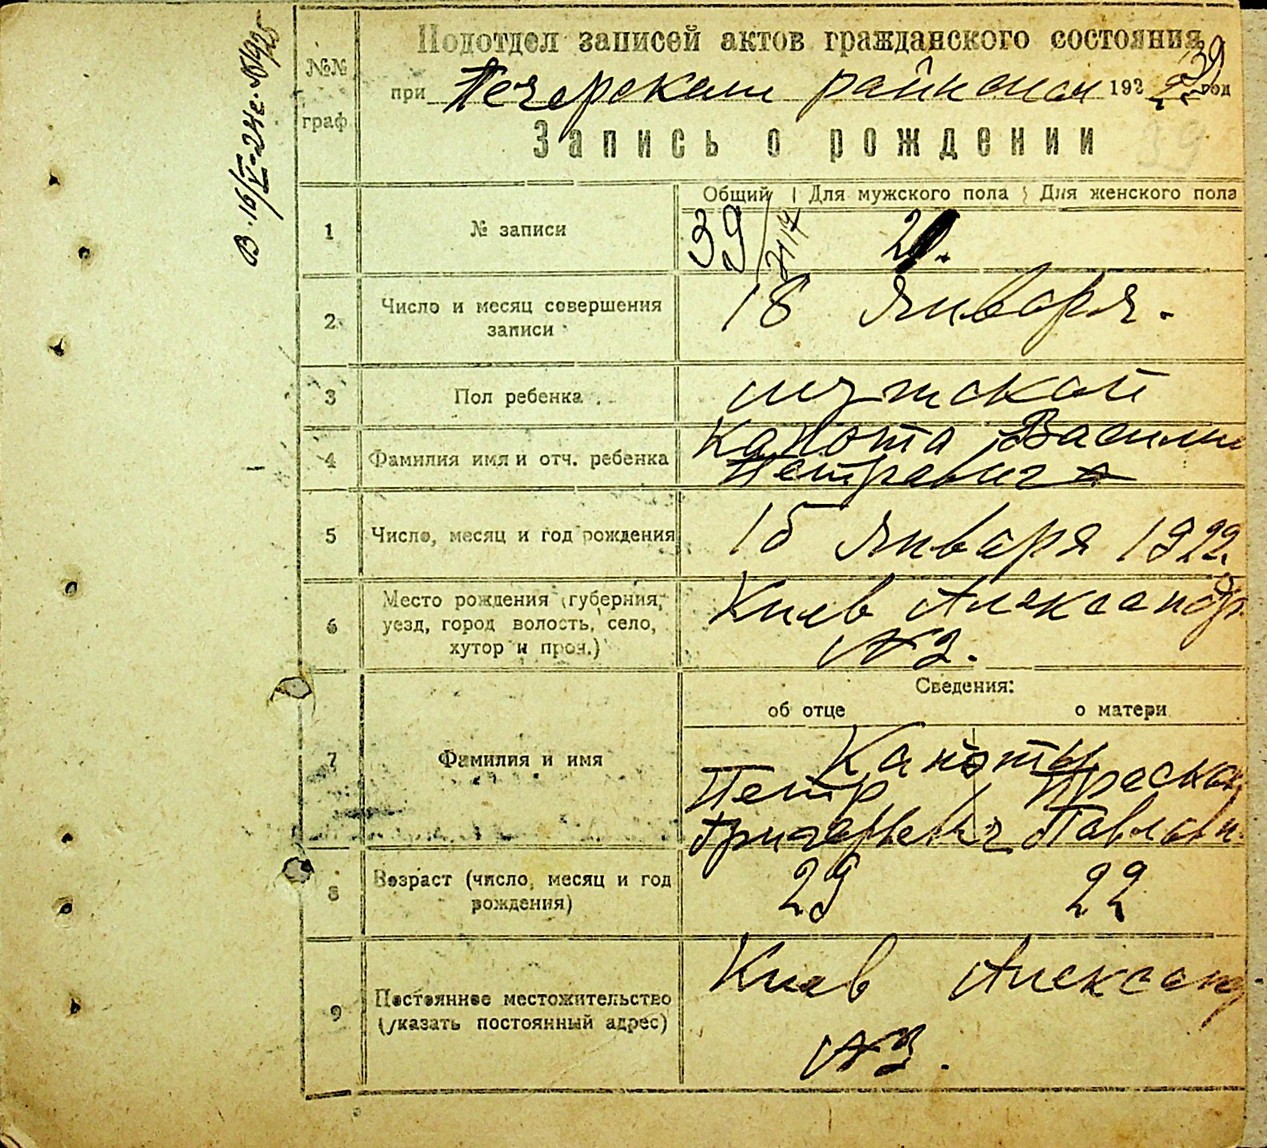 В. 16/V-24г. №1925
№№ граф
Подотдел записей актов гражданского состояния
при Печерском районом 1922 год
39
Запись о рождении
39
Общий | Для мужского пола | Для женского пола
1 № записи 39/ 21.
2 Число и месяц совершения записи 18 Января.
3 Пол ребенка мужской
4 Фамилия имя и отч. ребенка Капота Василий
Петрович
5 Число, месяц и год рождения 15 Января 1922.
6 Место рождения (губерния, уезд, город волость, село, хутор и проч.) Киев Александр
№3.
Сведения:
об отце о матери
7 Фамилия и имя Капоты
Петр Праско
Григорьевич Павловн
8 Возраст (число, месяц и год рождения) 29 22
9 Постоянное местожительство (указать постоянный адрес) Киев Александ
№3.